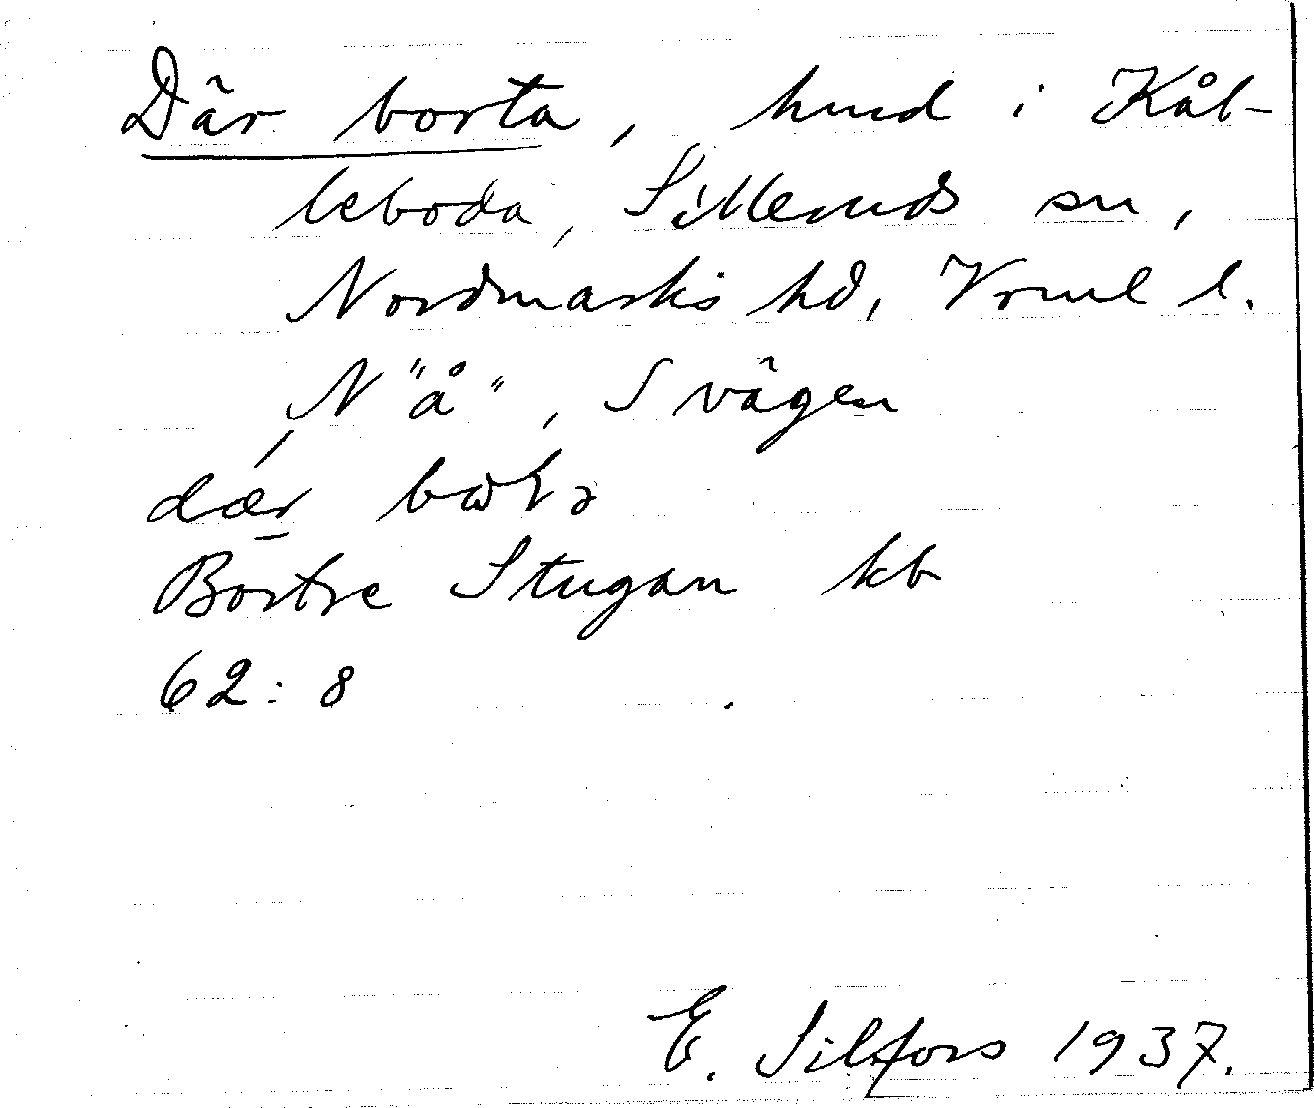 Där borta, hmd i Kål-
leboda, Silleruds sn,
Nordmarks hd, Vrml l.
N "å", S vägen
dær
Bortre Stugan kb
62:8
E. Silfors 1937.